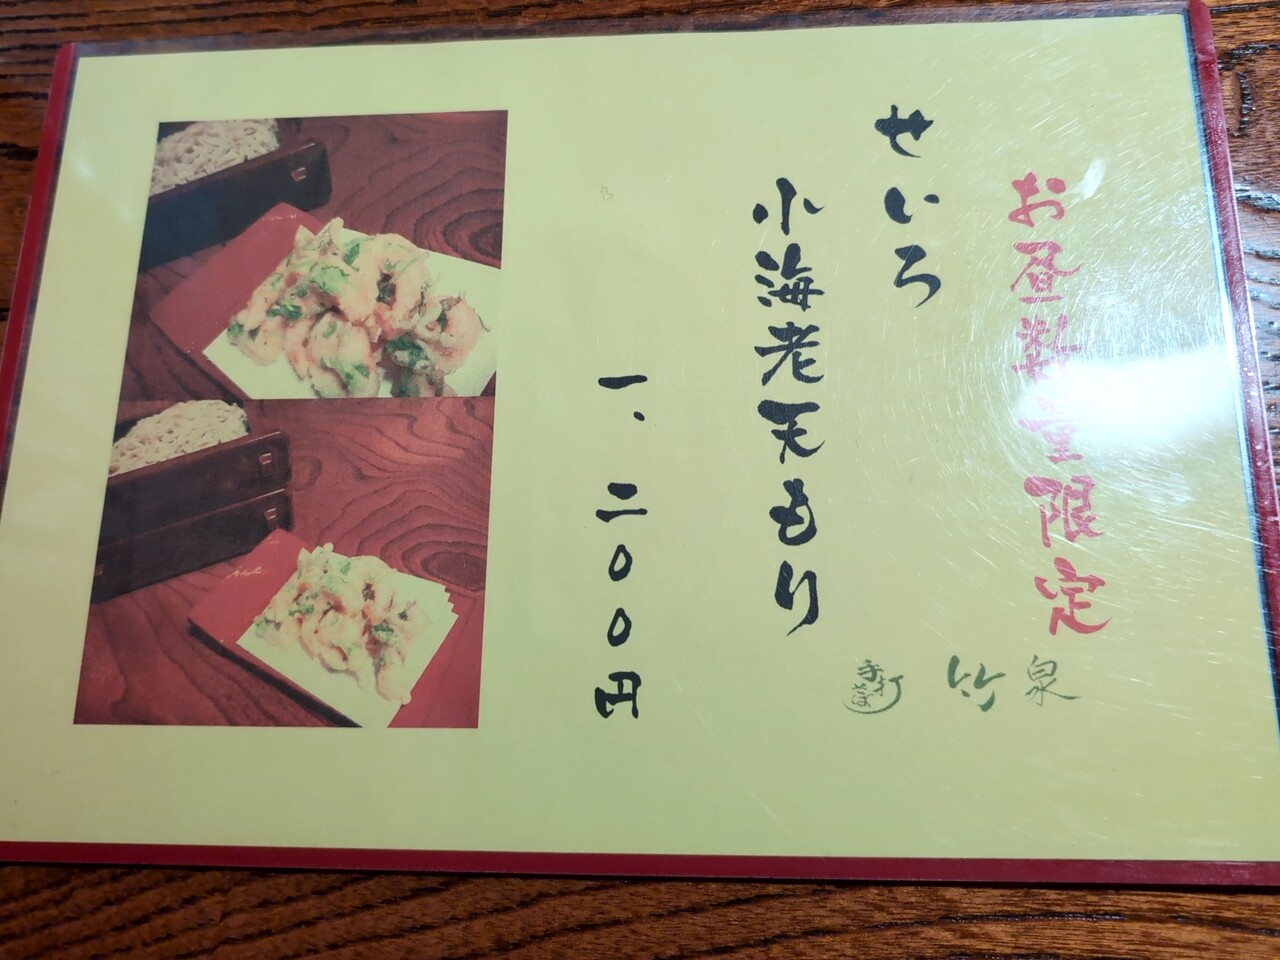 お昼数量限定
せいろ
小海老天もり
一、二〇〇円
手打そば
竹泉